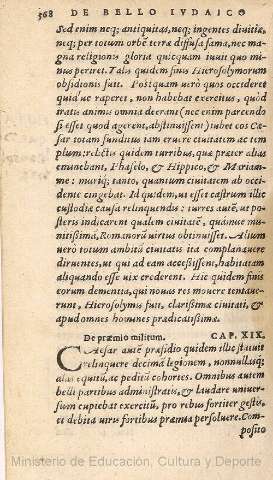 568 DE BELLO IVDAICO
Sed enim neq; antiquitas, neq; ingentes diuitiæ,
neq; per totum orbē terræ diffusa fama, nec ma
gna religionis gloria quicquam iuuit quo mi
nus periret. Talis quidem finis Hierosolymorum
obsidionis fuit. Postquam verò quos occideret
quid'ue raperet, non habebat exercitus, quòd
iratis animis omnia deerant (nec enim parcendo
si esset quod agerent, abstinuissent) iubet eos Cæ-
sar totam funditus iam eruere ciuitatem ac tem
plum: relictis quidem turribus, quæ præter alias
eminebant, Phaselo, & Hippico, & Mariam-
me: muriq; tanto, quantum ciuitatem ab occi
dente cingebat. Id quidem, ut esset castrum illic
custodiæ causa relinquendis: turres autē, ut po
steris indicarent qualem ciuitatē, quámue mu-
nitissimā, Romanorū uirtus obtinuisset. Alium
uerò totum ambitū ciuitatis ita complanauere
diruentes, ut qui ad eam accessissent, habitatam
aliquando esse uix crederent. Hic quidem finis
eorum dementia, qui nouas res mouere tentaue-
runt, Hierosolymis fuit, clarissimæ ciuitati, &
apud omnes homines prædicatissimæ.
De præmio militum. CAP. XIX.
Cæsar autē præsidio quidem illic statuit
relinquere decimā legionem, nonnullasq;
alas equitū, ac peditū cohortes. Omnibus autem
belli partibus administratis, & laudare uniuer-
sum cupiebat exercitū, pro rebus fortiter gestis,
et debita uiris fortibus præmia persoluere. Com
posito
Ministerio de Educación, Cultura y Deporte